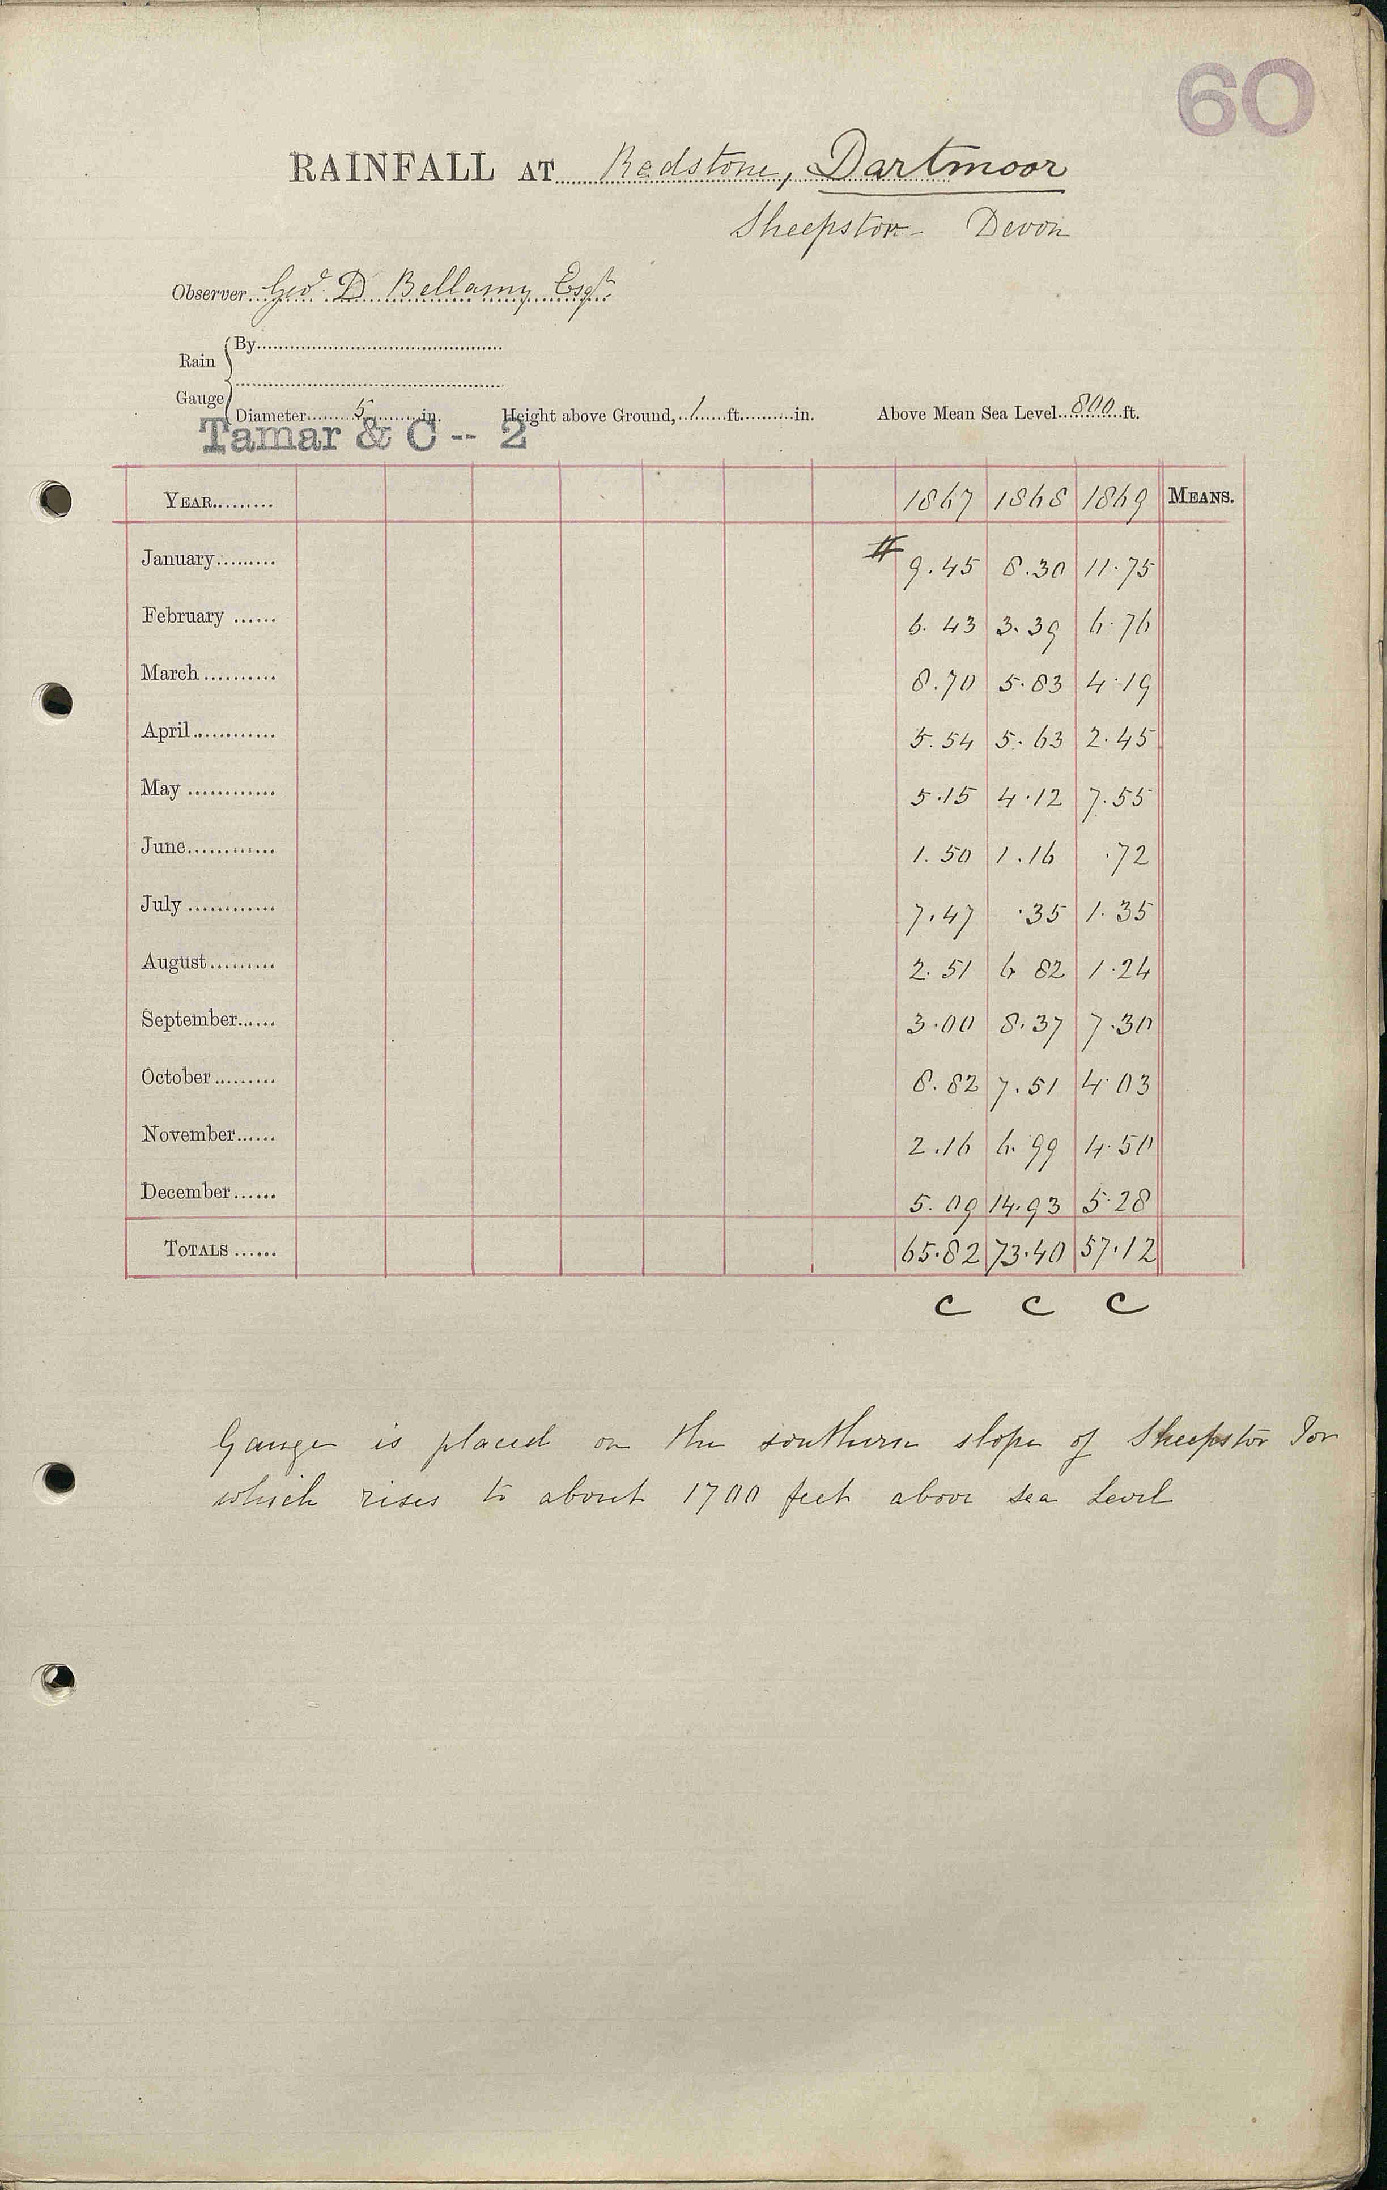 60
RAINFALL AT Redstone, Dartmoor
Sheepstor Devon
Observer Geo. D Bellamy Esqr.
Rain Gauge
By
Diameter 5 in. Height above Ground, 1 ft. in. Above Mean Sea Level 800 ft.
Tamar & C -- 2
YEAR 1867 1868 1869 MEANS.
January # 9.45 8.30 11.75
February 6.43 3.39 6.76
March 8.70 5.83 4.19
April 5.54 5.63 2.45
May 5.15 4.12 7.55
June 1.50 1.16 .72
July 7.47 .35 1.35
August 2.51 6 82 1.24
September 3.00 8.37 7.30
October 8.82 7.51 4.03
November 2.16 6.99 4.50
December 5.09 14.93 5.28
TOTALS 65.82 73.40 57.12
C C C
Gauge is placed on the southern slope of Sheepstor Tor
which rises to about 1700 feet above sea level